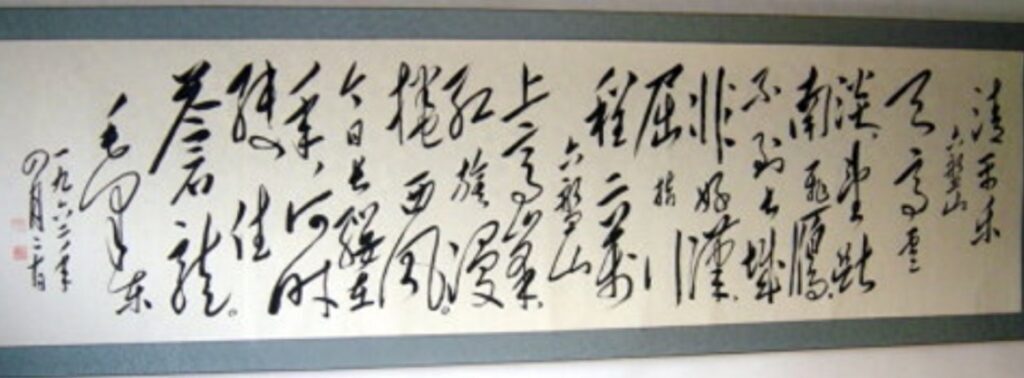 清平乐
六盘山
天高雲
淡,望断
南飛雁,
不到长城
非好漢,
屈指行
程二万
六盤山
上高峯,
红旗漫
捲西风。
今日长缨在
手,何时
缚住
苍龙。
毛泽东
一九六二年
四月二十日